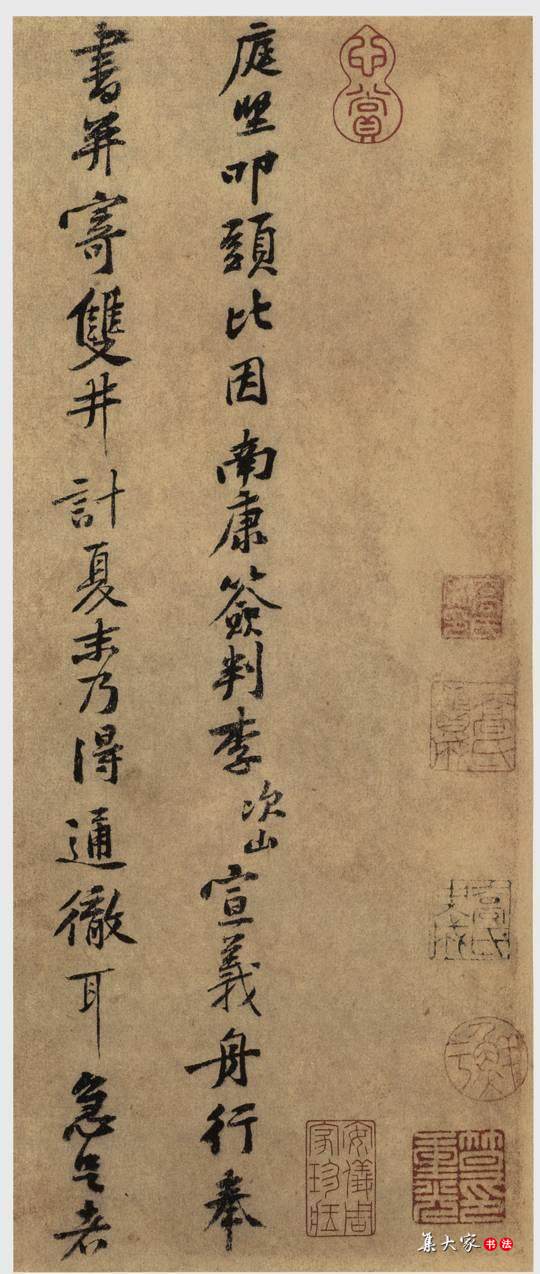 庭堅叩頭比因南康簽判李次山宣義舟行奉
書并寄雙井計夏末乃得通徹耳急足者
安儀周家珍藏
集大家书法